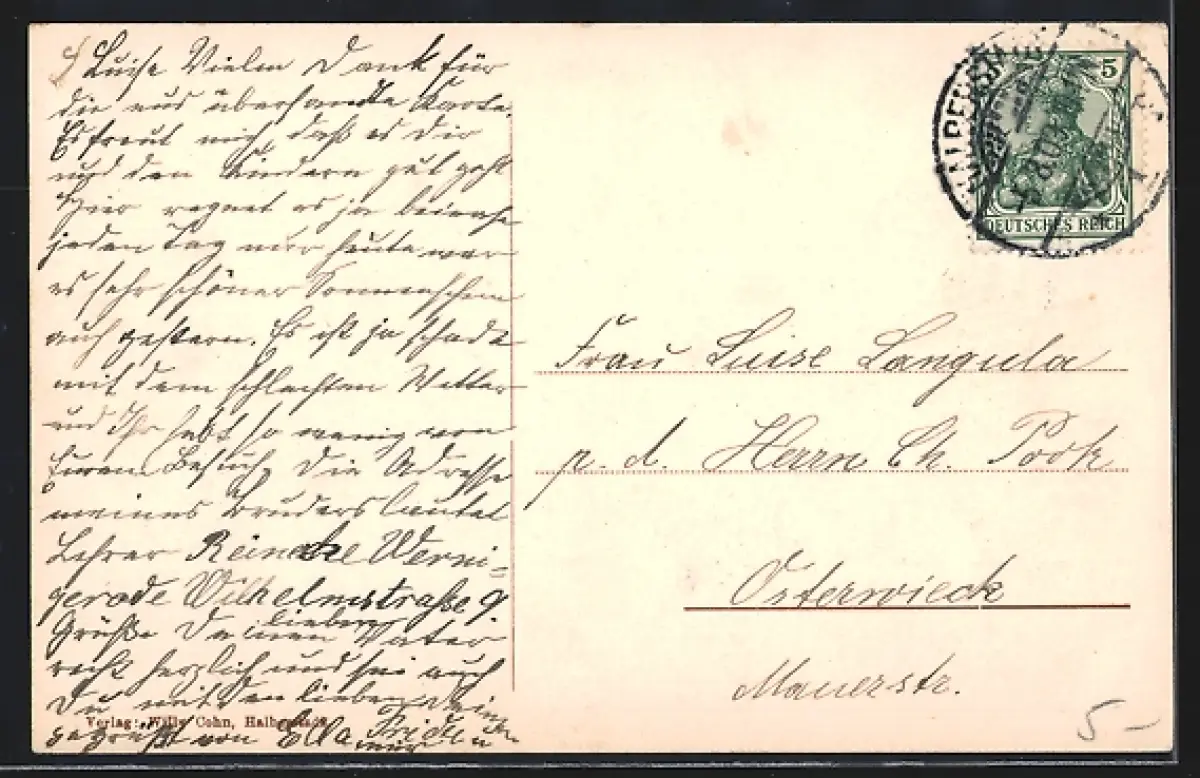 Luise Vielen Dank für
die uns übersandte Karte.
Es freut mich, daß es dir
und den Kindern gut geht
Hier regnet es ja beinahe
jeden Tag nur heute war
es sehr schöner Sonnenschein
auch gestern. Es ist ja schade
mit dem schlechten Wetter
und Ihr habt so wenig von
Eurem Besuch. Die Adresse
meines Bruders lautet
Lehrer Reinecke Werni=
gerode Wilhelmstraße 9
Grüße Deinen lieben Vater
recht herzlich und sei auch
Du mit den lieben
gegrüßt von Ella
Verlag: Willy Cohn, Halberstadt
HALBERSTADT
5
DEUTSCHES REICH
Frau Luise Langula
p. d. Herrn Ch. Pook
Osterwieck
Mauerstr.
5 -